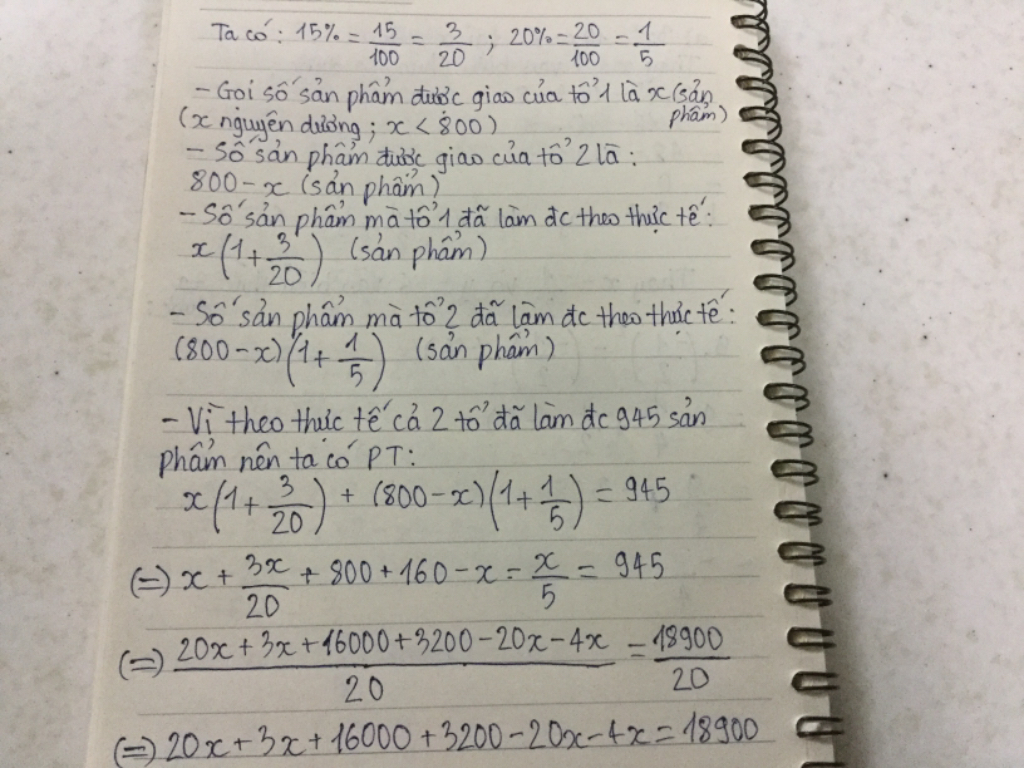 Ta có: 15% = 15/100 = 3/20 ; 20% = 20/100 = 1/5
- Gọi số sản phẩm được giao của tổ 1 là x (sản phẩm)
(x nguyên dương ; x < 800)
- Số sản phẩm được giao của tổ 2 là:
800 - x (sản phẩm)
- Số sản phẩm mà tổ 1 đã làm đc theo thực tế:
x(1 + 3/20) (sản phẩm)
- Số sản phẩm mà tổ 2 đã làm đc theo thực tế:
(800 - x)(1 + 1/5) (sản phẩm)
- Vì theo thực tế cả 2 tổ đã làm đc 945 sản
phẩm nên ta có PT:
x(1 + 3/20) + (800 - x)(1 + 1/5) = 945
(=) x + 3x/20 + 800 + 160 - x - x/5 = 945
(=) 20x + 3x + 16000 + 3200 - 20x - 4x/20 = 18900/20
(=) 20x + 3x + 16000 + 3200 - 20x - 4x = 18900